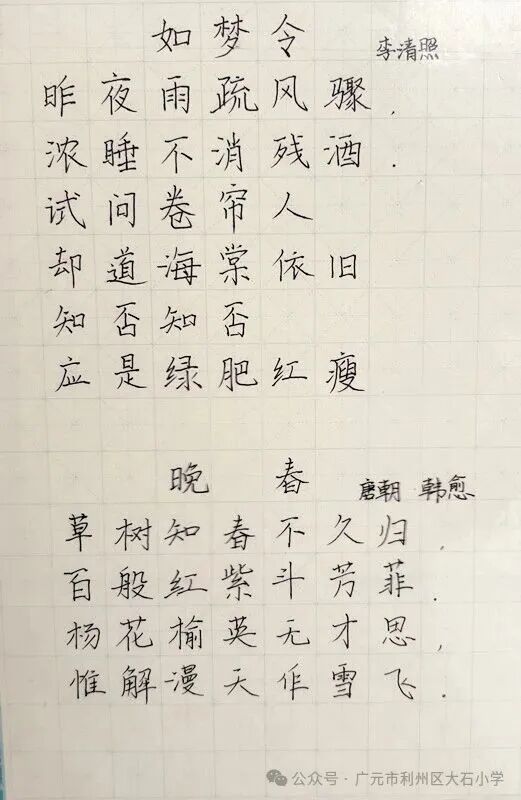 如梦令 李清照
昨夜雨疏风骤，
浓睡不消残酒.
试问卷帘人
却道海棠依旧
知否知否
应是绿肥红瘦
晚春 唐朝 韩愈
草树知春不久归，
百般红紫斗芳菲.
杨花榆英无才思，
惟解漫天作雪飞.
公众号·广元市利州区大石小学